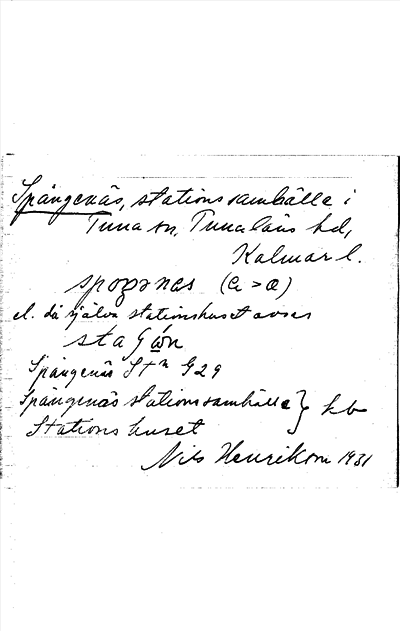 Spångenäs, stationssamhälle i
Tuna sn, Tunaläns hd,
Kalmar l.
spoŋənas (a > æ)
el. då själva stationshuset avses
Spångenäs Stn G29
Spångenäs stationssamhälle } kb
Stationshuset
Nils Henrikson 1931